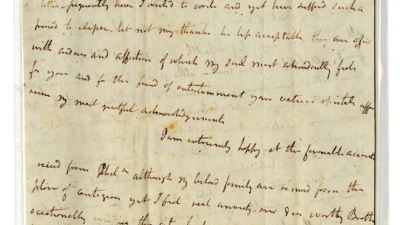 frequently have I wished to write and yet have suffer'd such a
period to elapse. let not my thanks be less acceptable they are offer'd
with ardour and affection of which my soul most abundantly feels
for you and for the fund of entertainment your various epistles
receive my most grateful acknowledgements
I am extremely happy at the favorable accounts
recied from Phila although my beloved family are removed from the
place of contageon yet I feel real anxiety our dear worthy
occationally